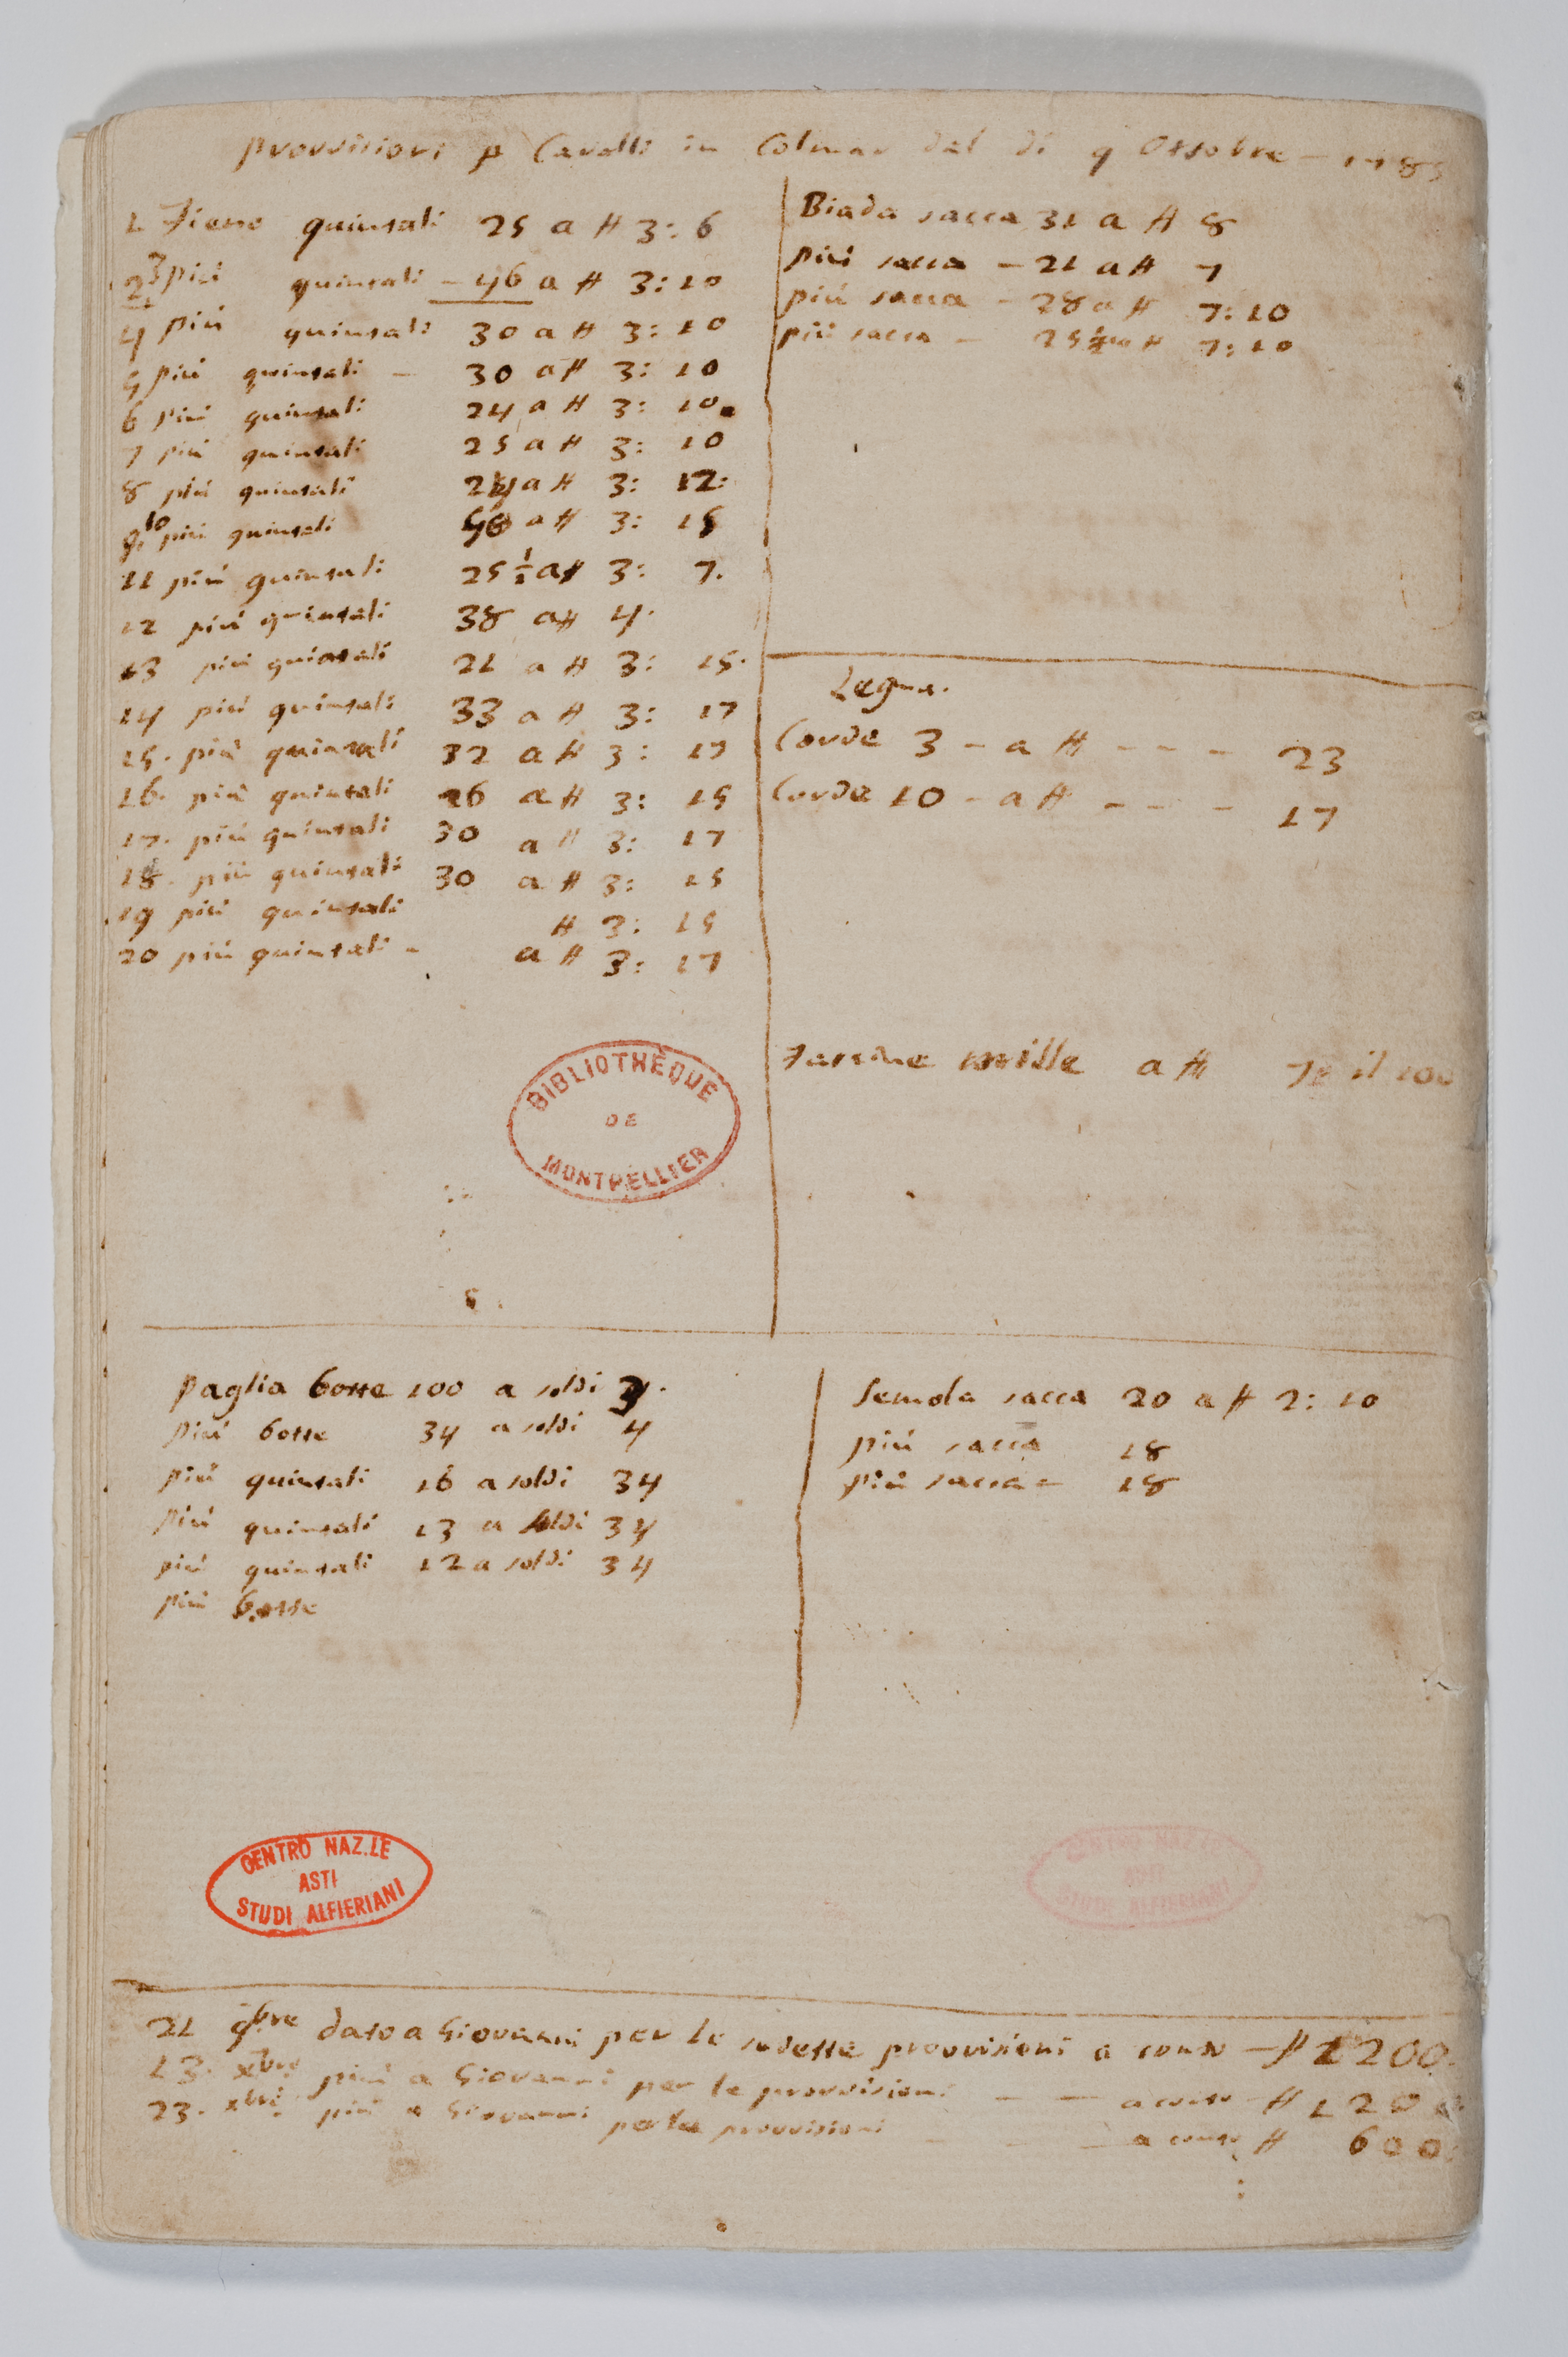 Provvisioni p Cavalli in Colmar dal di 9 Ottobre - 1785
1 Fieno quintali 25 a # 3: 6
2 3 più quintali - 46 a # 3: 10
4 più quintali 30 a # 3: 10
5 più quintali - 30 a # 3: 10
6 più quintali 24 a # 3: 10
7 più quintali 25 a # 3: 10
8 più quintali 24 a # 3: 12:
9. 10 più quintali a # 3: 15
11 più quintali 25 1/2 a # 3: 7.
12 più quintali 38 a # 4.
13 più quintali 21 a # 3: 15.
14 più quintali 33 a # 3: 17
15. più quintali 32 a # 3: 17
16. più quintali 26 a # 3: 15
17. più quintali 30 a # 3: 17
18. più quintali 30 a # 3: 15
19 più quintali # 3: 15
20 più quintali - a # 3: 17
Biada sacca 31 a # 8
più sacca - 21 a # 7
più sacca - 28 a # 7: 10
più sacca - 25 1/2 a # 7: 10
Legna.
Corde 3 - a # - - - 23
Corde 10 - a # - - - 17
mille a # il 100
BIBLIOTHÈQUE
DE
MONTPELLIER
Paglia botte 100 a soldi
più botte 34 a soldi 4
più quintali 16 a soldi 34
più quintali 13 a soldi 34
più quintali 12 a soldi 34
più botte
Semola sacca 20 a # 2: 10
più sacca 18
più sacca - 18
CENTRO NAZ.LE
ASTI
STUDI ALFIERIANI
CENTRO NAZ.LE
ASTI
STUDI ALFIERIANI
21 9bre dato a Giovanni per le sudette provvisioni a conto - # 1200.
13. xbre più a Giovanni per le provvisioni - - a conto # 1200
23. xbre più a Giovanni per le provvisioni - - - a conto # 600: